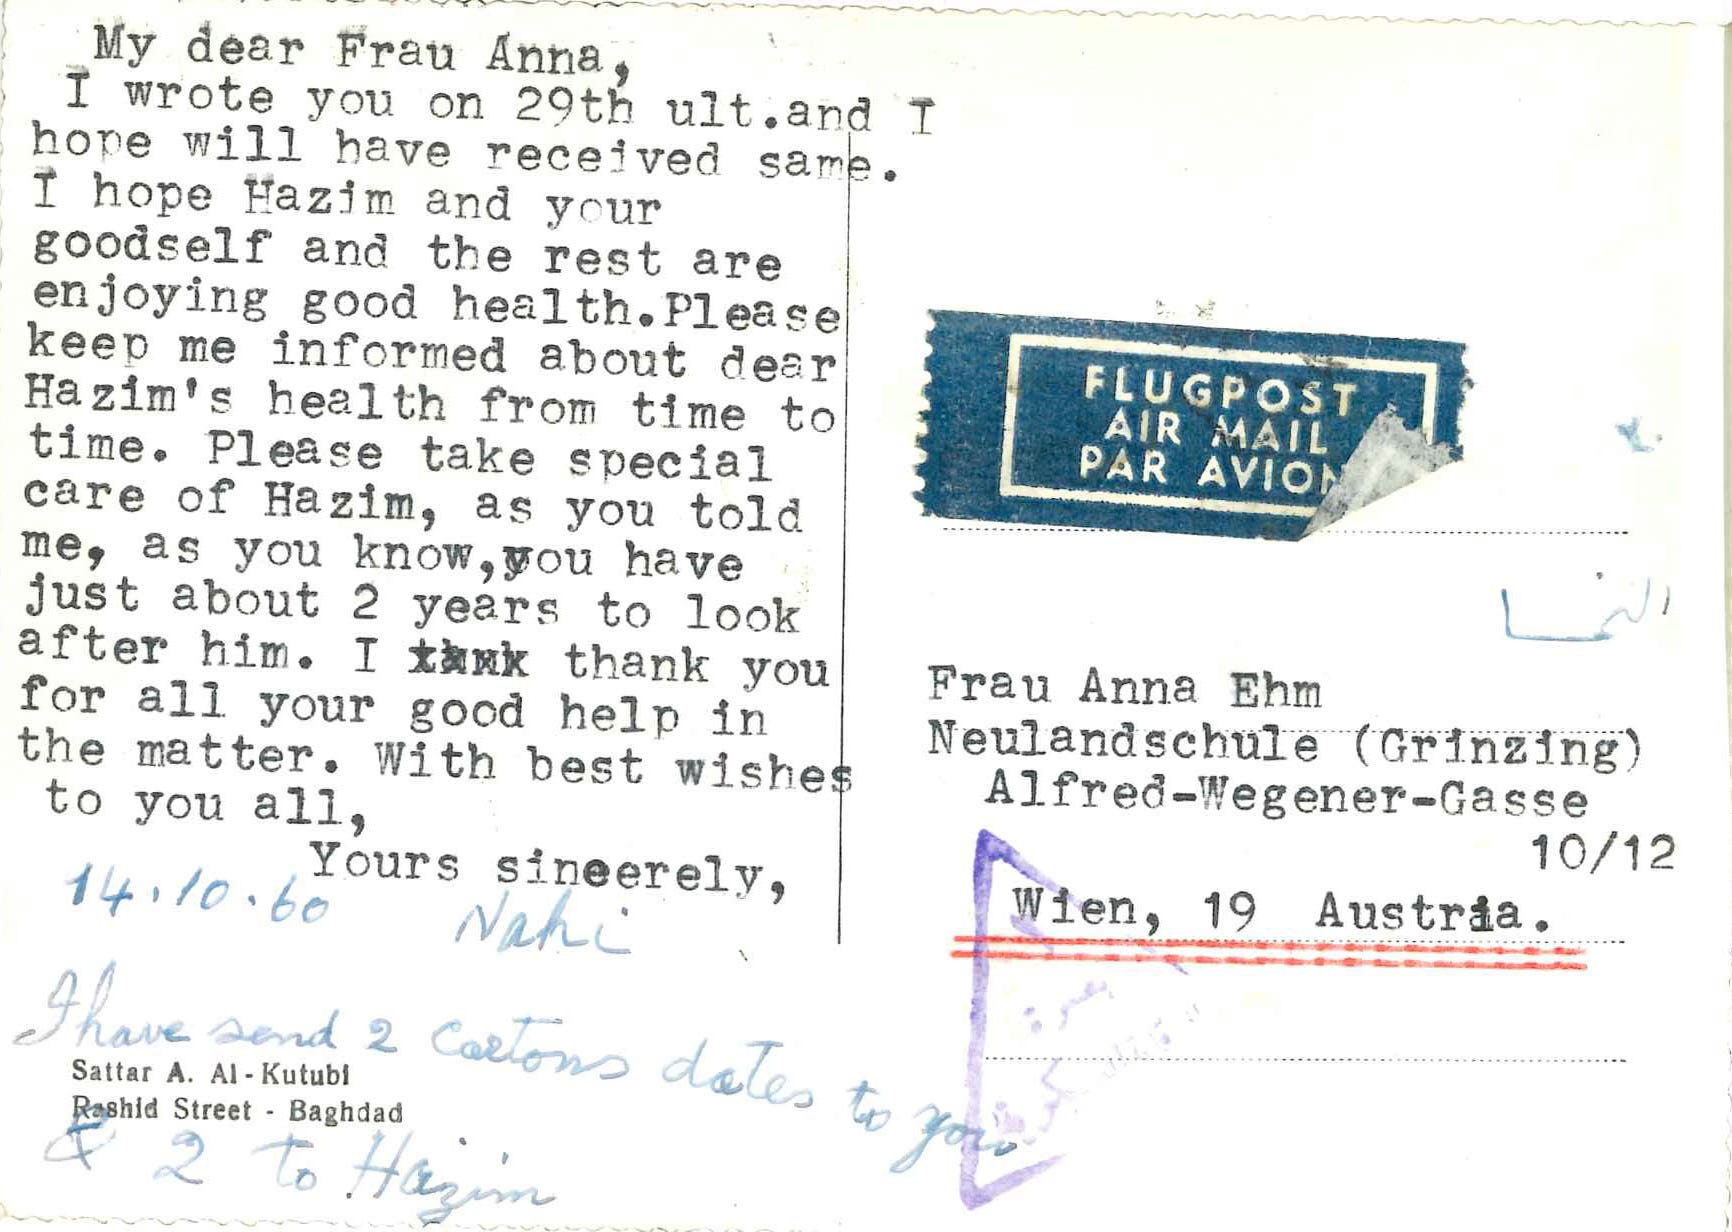 My dear Frau Anna,
I wrote you on 29th ult.and I
hope will have received same.
I hope Hazim and your
goodself and the rest are
enjoying good health.Please
keep me informed about dear
Hazim's health from time to
time. Please take special
care of Hazim, as you told
me, as you know,you have
just about 2 years to look
after him. I thank you
for all your good help in
the matter. With best wishes
to you all,
Yours sincerely,
14.10.60 Nahi
I have send 2 cartons dates to you
& 2 to Hazim
Sattar A. Al-Kutubi
Rashid Street - Baghdad
FLUGPOST
AIR MAIL
PAR AVION
النمسا
Frau Anna Ehm
Neulandschule (Grinzing)
Alfred-Wegener-Gasse
10/12
Wien, 19 Austria.